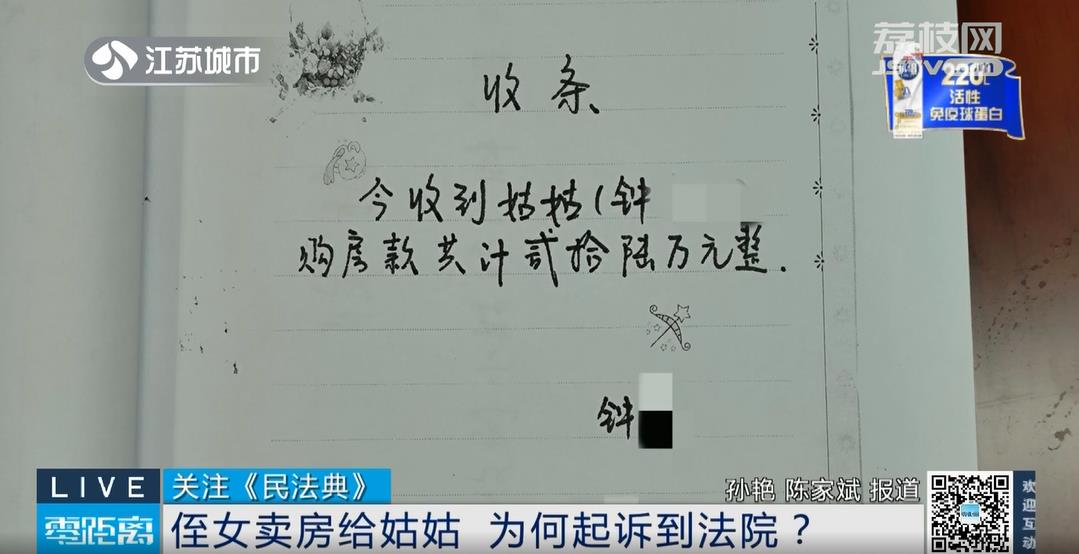 江苏城市
荔枝网
JSTV.COM
220
活性
免疫球蛋白
收条
今收到姑姑(钟
购房款共计贰拾陆万元整.
钟
LIVE
关注《民法典》
孙艳 陈家斌 报道
零距离
侄女卖房给姑姑 为何起诉到法院?
欢迎互动